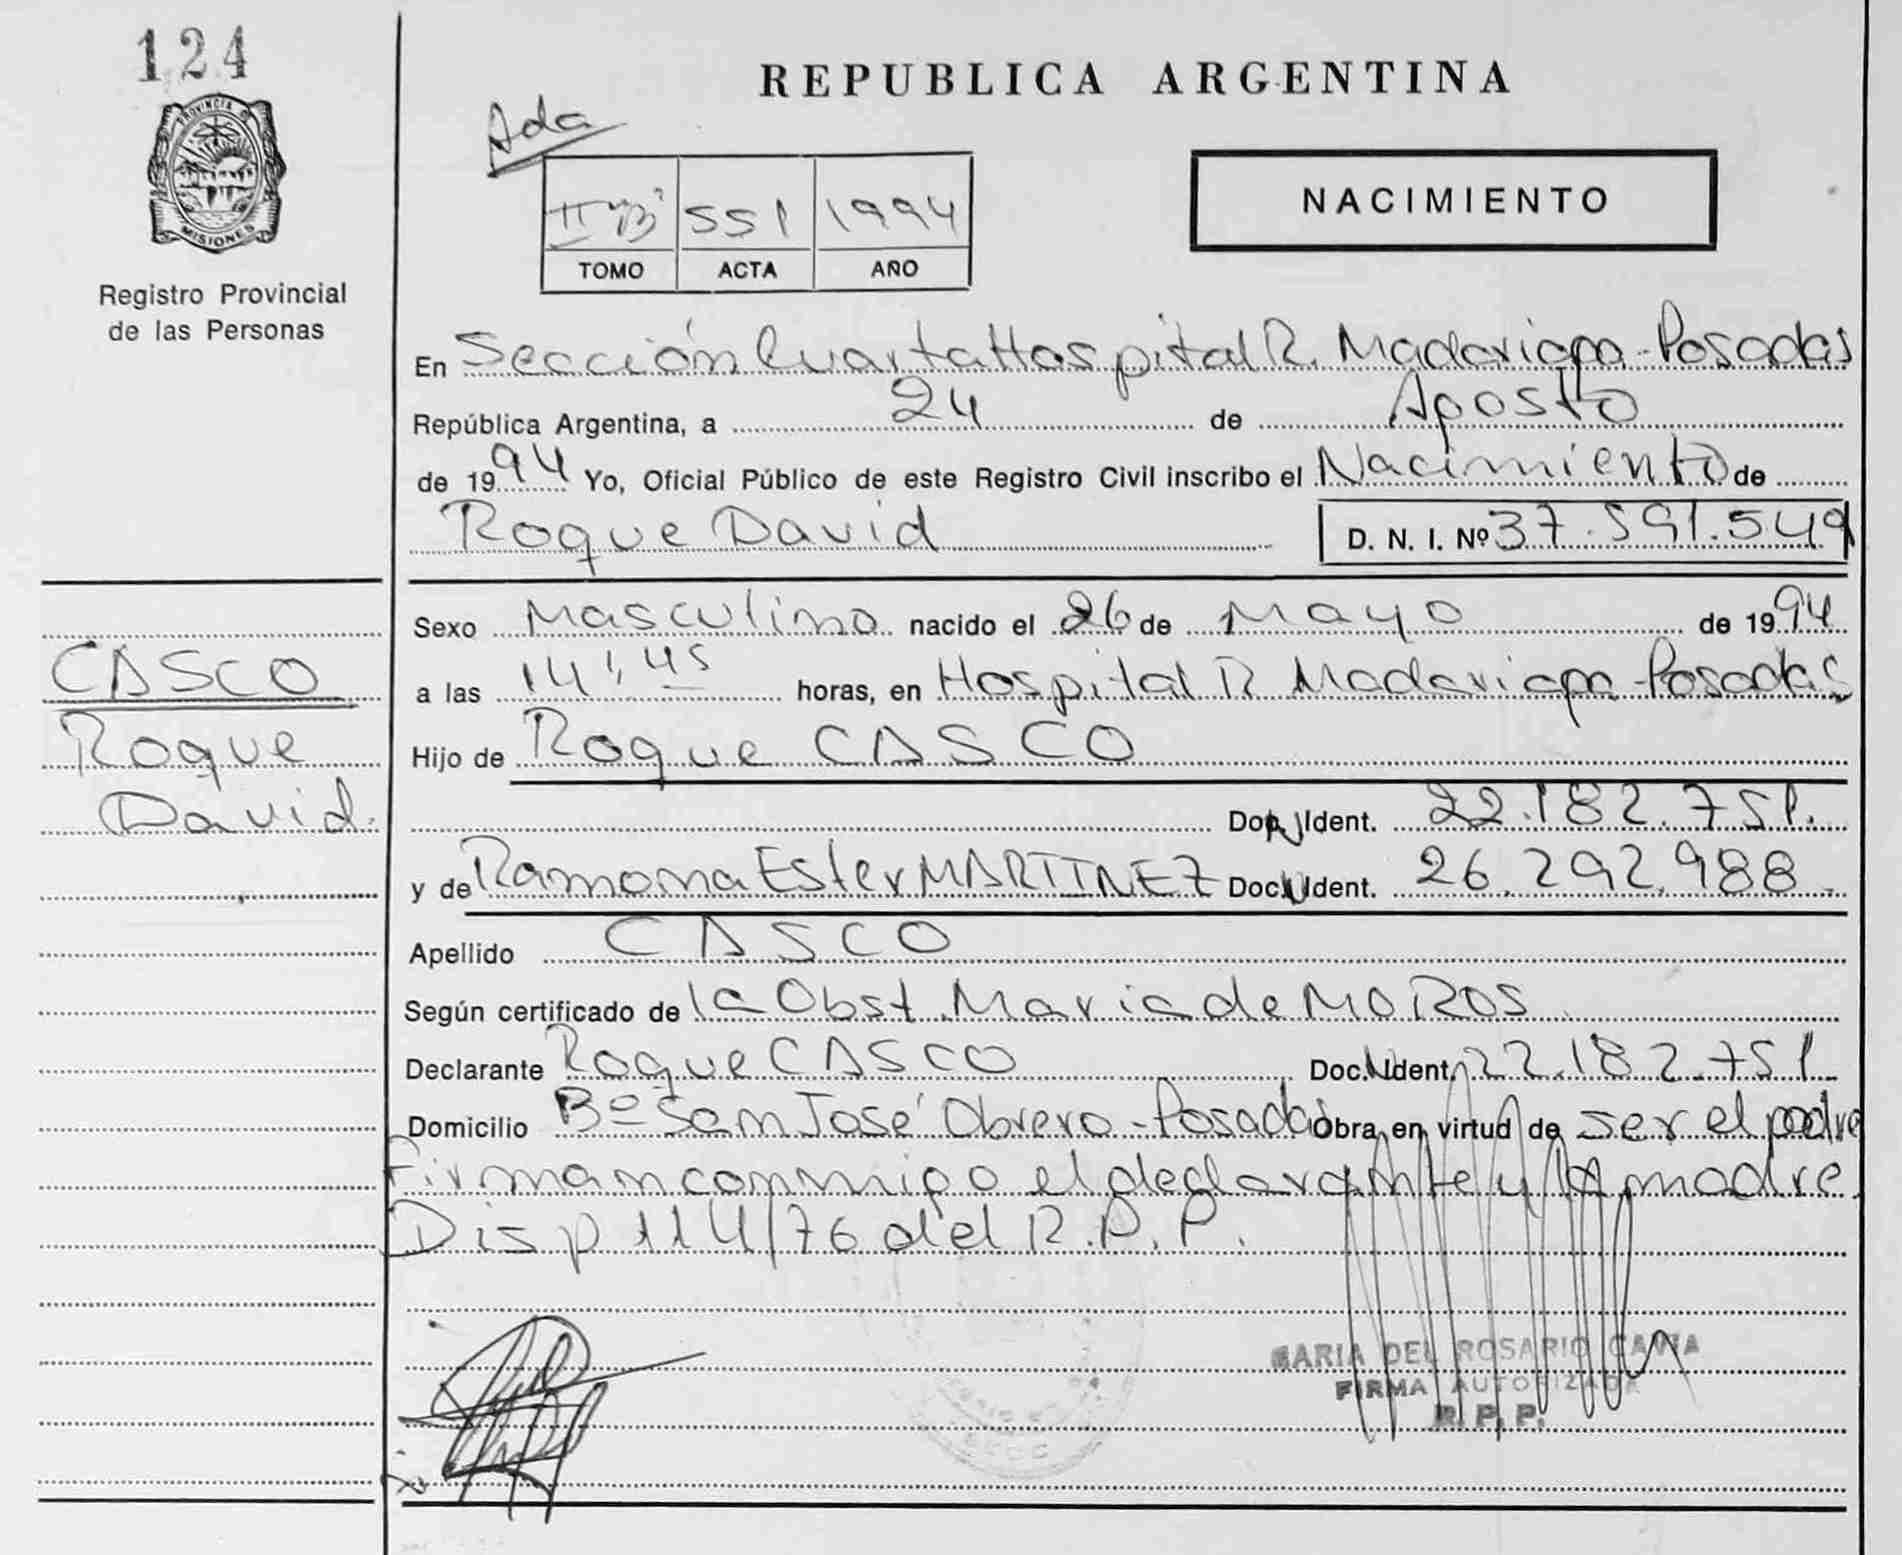 124
PROVINCIA DE
MISIONES
Registro Provincial
de las Personas
REPUBLICA ARGENTINA
Ada
II "B" 551 1994
TOMO ACTA AÑO
NACIMIENTO
En Sección Cuarta Hospital R. Madariaga - Posadas
República Argentina, a 24 de Agosto
de 1994 Yo, Oficial Público de este Registro Civil inscribo el Nacimiento de
Roque David D. N. I. Nº 37.591.549
Sexo Masculino nacido el 26 de Mayo de 1994
a las 14:45 horas, en Hospital R Madariaga - Posadas
Hijo de Roque CASCO
Doc. N Ident. 22.182.751.
y de Ramona Ester MARTINEZ Doc. N Ident. 26.292.988
Apellido CASCO
Según certificado de la Obst. Maria de MOROS
Declarante Roque CASCO Doc. N Ident. 22.182.751
Domicilio Bº San José Obrero - Posadas obra en virtud de ser el padre
Firman conmigo el declarante y la madre.
Disp 114/76 del R.P.P.
CASCO
Roque
David.
MARIA DEL ROSARIO
FIRMA AUTORIZADA
R. P. P.